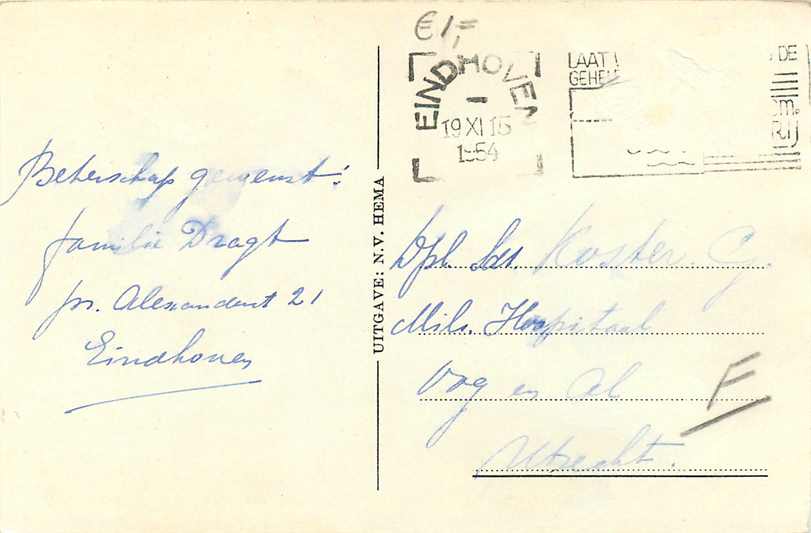 € 1,=
EINDHOVEN
19 XI 15
1954
LAAT
DE
GEHE
m.
Beterschap gewenst!
familie Dragt
pr. Alexanderst 21
Eindhoven
UITGAVE: N.V. HEMA
Dpl. Sgt. Koster. G.
Mil. Hospitaal
Oog en Al
Utrecht.
F